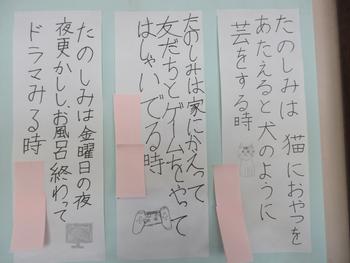 たのしみは 猫におやつを
あたえると犬のように
芸をする時
たのしみは家にかえって
友だちとゲームをやって
はしゃいでる時
たのしみは金曜日の夜
夜更かしし、お風呂終わって
ドラマみる時